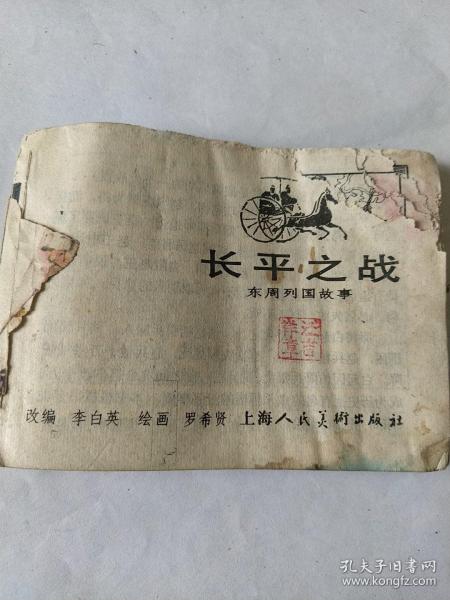 长平之战
东周列国故事
改编 李白英 绘画 罗希贤 上海人民美術出版社
孔夫子旧书网
www.kongfz.com